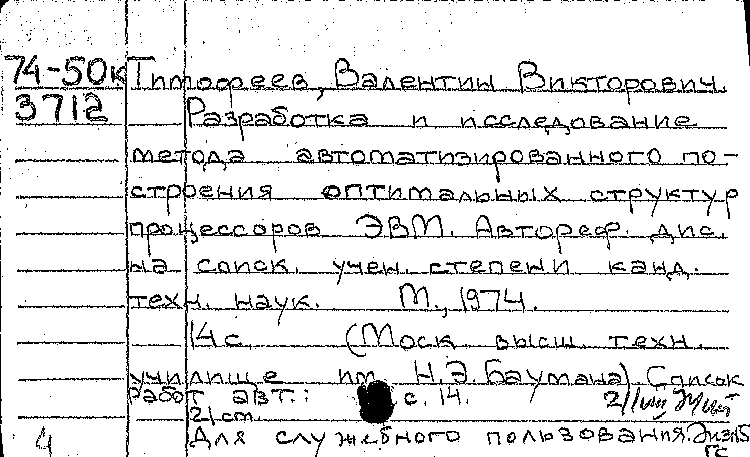 74-50к Тимофеев, Валентин Викторович.
3712 Разработка и исследование
метода автоматизированного по-
строения оптимальных структур
процессоров ЭВМ. Автореф. дис.
на соиск. учен. степени канд.
техн. наук. М., 1974.
14 с. (Моск. высш. техн.
училище им. Н.Э. Баумана). Список
работ авт.: с. 14.
21 ст.
4 Для служебного пользования.